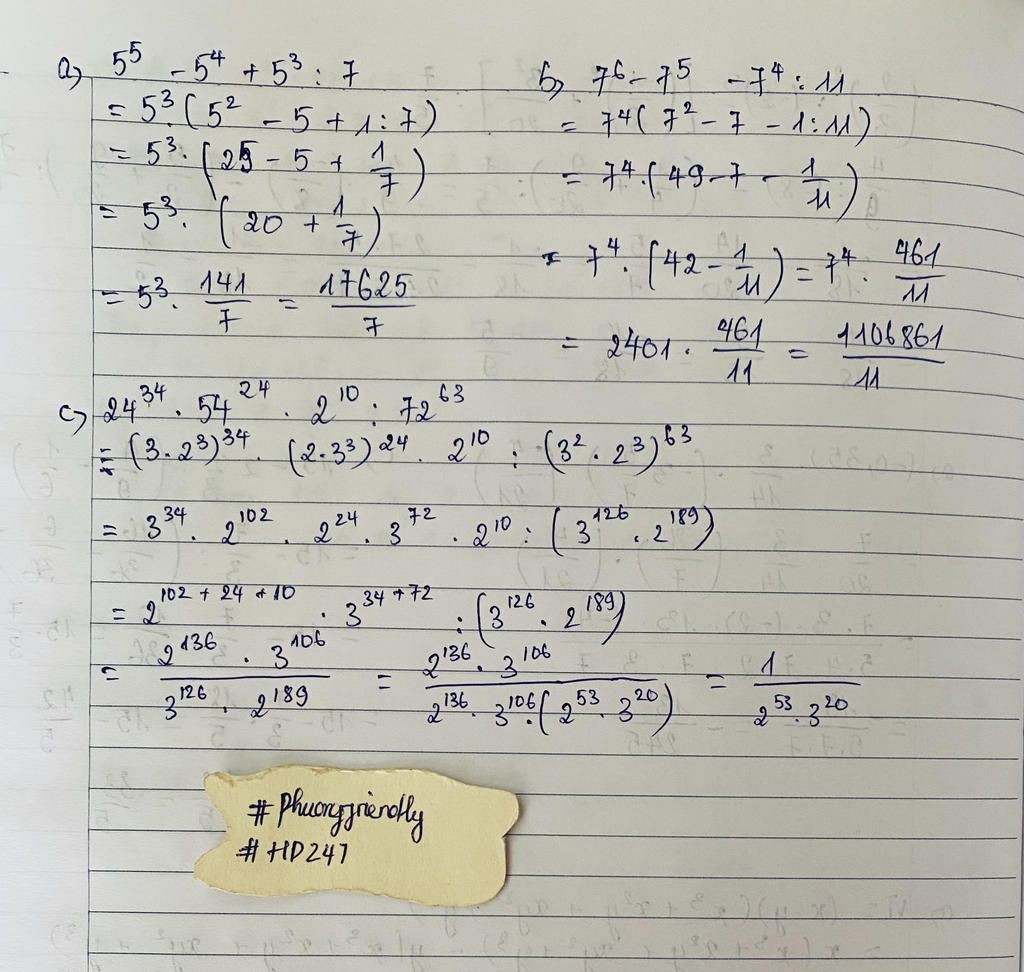 a) 5⁵ - 5⁴ + 5³ : 7
= 5³.(5² - 5 + 1 : 7)
= 5³.(25 - 5 + 1/7)
= 5³.(20 + 1/7)
= 5³. 141/7 = 17625/7
b) 7⁶ - 7⁵ - 7⁴ : 11
= 7⁴(7² - 7 - 1 : 11)
= 7⁴.(49 - 7 - 1/11)
= 7⁴.(42 - 1/11) = 7⁴. 461/11
= 2401 . 461/11 = 1106861/11
c) 24³⁴ . 54²⁴ . 2¹⁰ : 72⁶³
= (3.2³)³⁴ . (2.3³)²⁴ . 2¹⁰ : (3² . 2³)⁶³
= 3³⁴ . 2¹⁰² . 2²⁴ . 3⁷² . 2¹⁰ : (3¹²⁶ . 2¹⁸⁹)
= 2¹⁰²⁺²⁴⁺¹⁰ . 3³⁴⁺⁷² : (3¹²⁶ . 2¹⁸⁹)
= 2¹³⁶ . 3¹⁰⁶ / 3¹²⁶ . 2¹⁸⁹ = 2¹³⁶ . 3¹⁰⁶ / 2¹³⁶ . 3¹⁰⁶.(2⁵³ . 3²⁰) = 1 / 2⁵³ . 3²⁰
#Phuongfriendly
#HD247